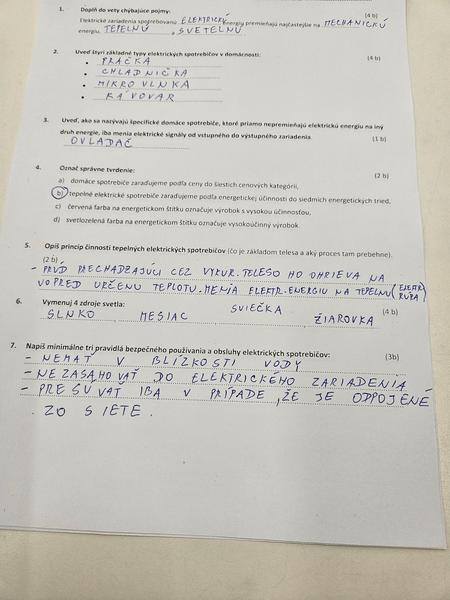 1. Doplň do vety chýbajúce pojmy: (4 b)
Elektrické zariadenia spotrebovanú ELEKTRICKÚ energiu premieňajú najčastejšie na MECHANICKÚ
energiu, TEPELNÚ, SVETELNÚ
2. Uveď štyri základné typy elektrických spotrebičov v domácnosti: (4 b)
• PRÁČKA
• CHLADNIČKA
• MIKROVLNKA
• KÁVOVAR
3. Uveď, ako sa nazývajú špecifické domáce spotrebiče, ktoré priamo nepremieňajú elektrickú energiu na iný
druh energie, iba menia elektrické signály od vstupného do výstupného zariadenia. (1 b)
OVLÁDAČ
4. Označ správne tvrdenie: (2 b)
a) domáce spotrebiče zaraďujeme podľa ceny do šiestich cenových kategórií,
b) tepelné elektrické spotrebiče zaraďujeme podľa energetickej účinnosti do siedmich energetických tried,
c) červená farba na energetickom štítku označuje výrobok s vysokou účinnosťou,
d) svetlozelená farba na energetickom štítku označuje vysokoúčinný výrobok.
5. Opíš princíp činnosti tepelných elektrických spotrebičov (čo je základom telesa a aký proces tam prebehne).
(2 b)
- PRÚD PRECHÁDZAJÚCI CEZ VYKUR. TELESO HO OHRIEVA NA
VOPRED URČENÚ TEPLOTU. MENIA ELEKTR. ENERGIU NA TEPELNÚ (ELEKTR. RÚRA)
6. Vymenuj 4 zdroje svetla: (4 b)
SLNKO MESIAC SVIEČKA ŽIAROVKA
7. Napíš minimálne tri pravidlá bezpečného používania a obsluhy elektrických spotrebičov: (3b)
- NEMAŤ V BLÍZKOSTI VODY
- NEZASAHOVAŤ DO ELEKTRICKÉHO ZARIADENIA
- PRESÚVAŤ IBA V PRÍPADE, ŽE JE ODPOJENÉ
ZO SIETE.